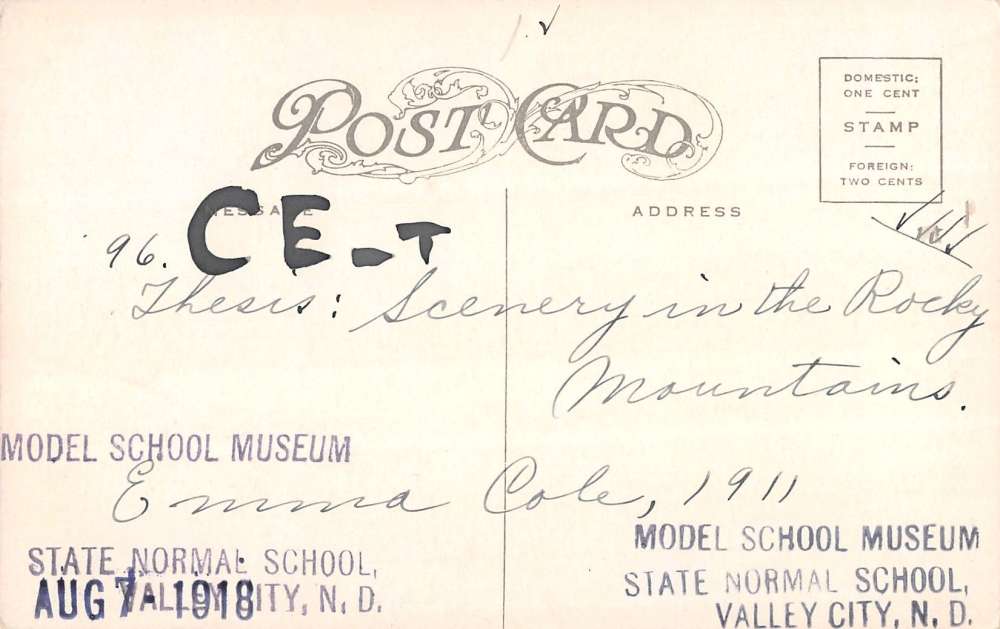 POST CARD
DOMESTIC;
ONE CENT
STAMP
FOREIGN:
TWO CENTS
MESSAGE
ADDRESS
CE-T
96.
Thesis: Scenery in the Rocky
Mountains.
MODEL SCHOOL MUSEUM
Emma Cole, 1911
STATE NORMAL SCHOOL,
VALLEY CITY, N. D.
AUG 7 - 1918
MODEL SCHOOL MUSEUM
STATE NORMAL SCHOOL,
VALLEY CITY, N. D.